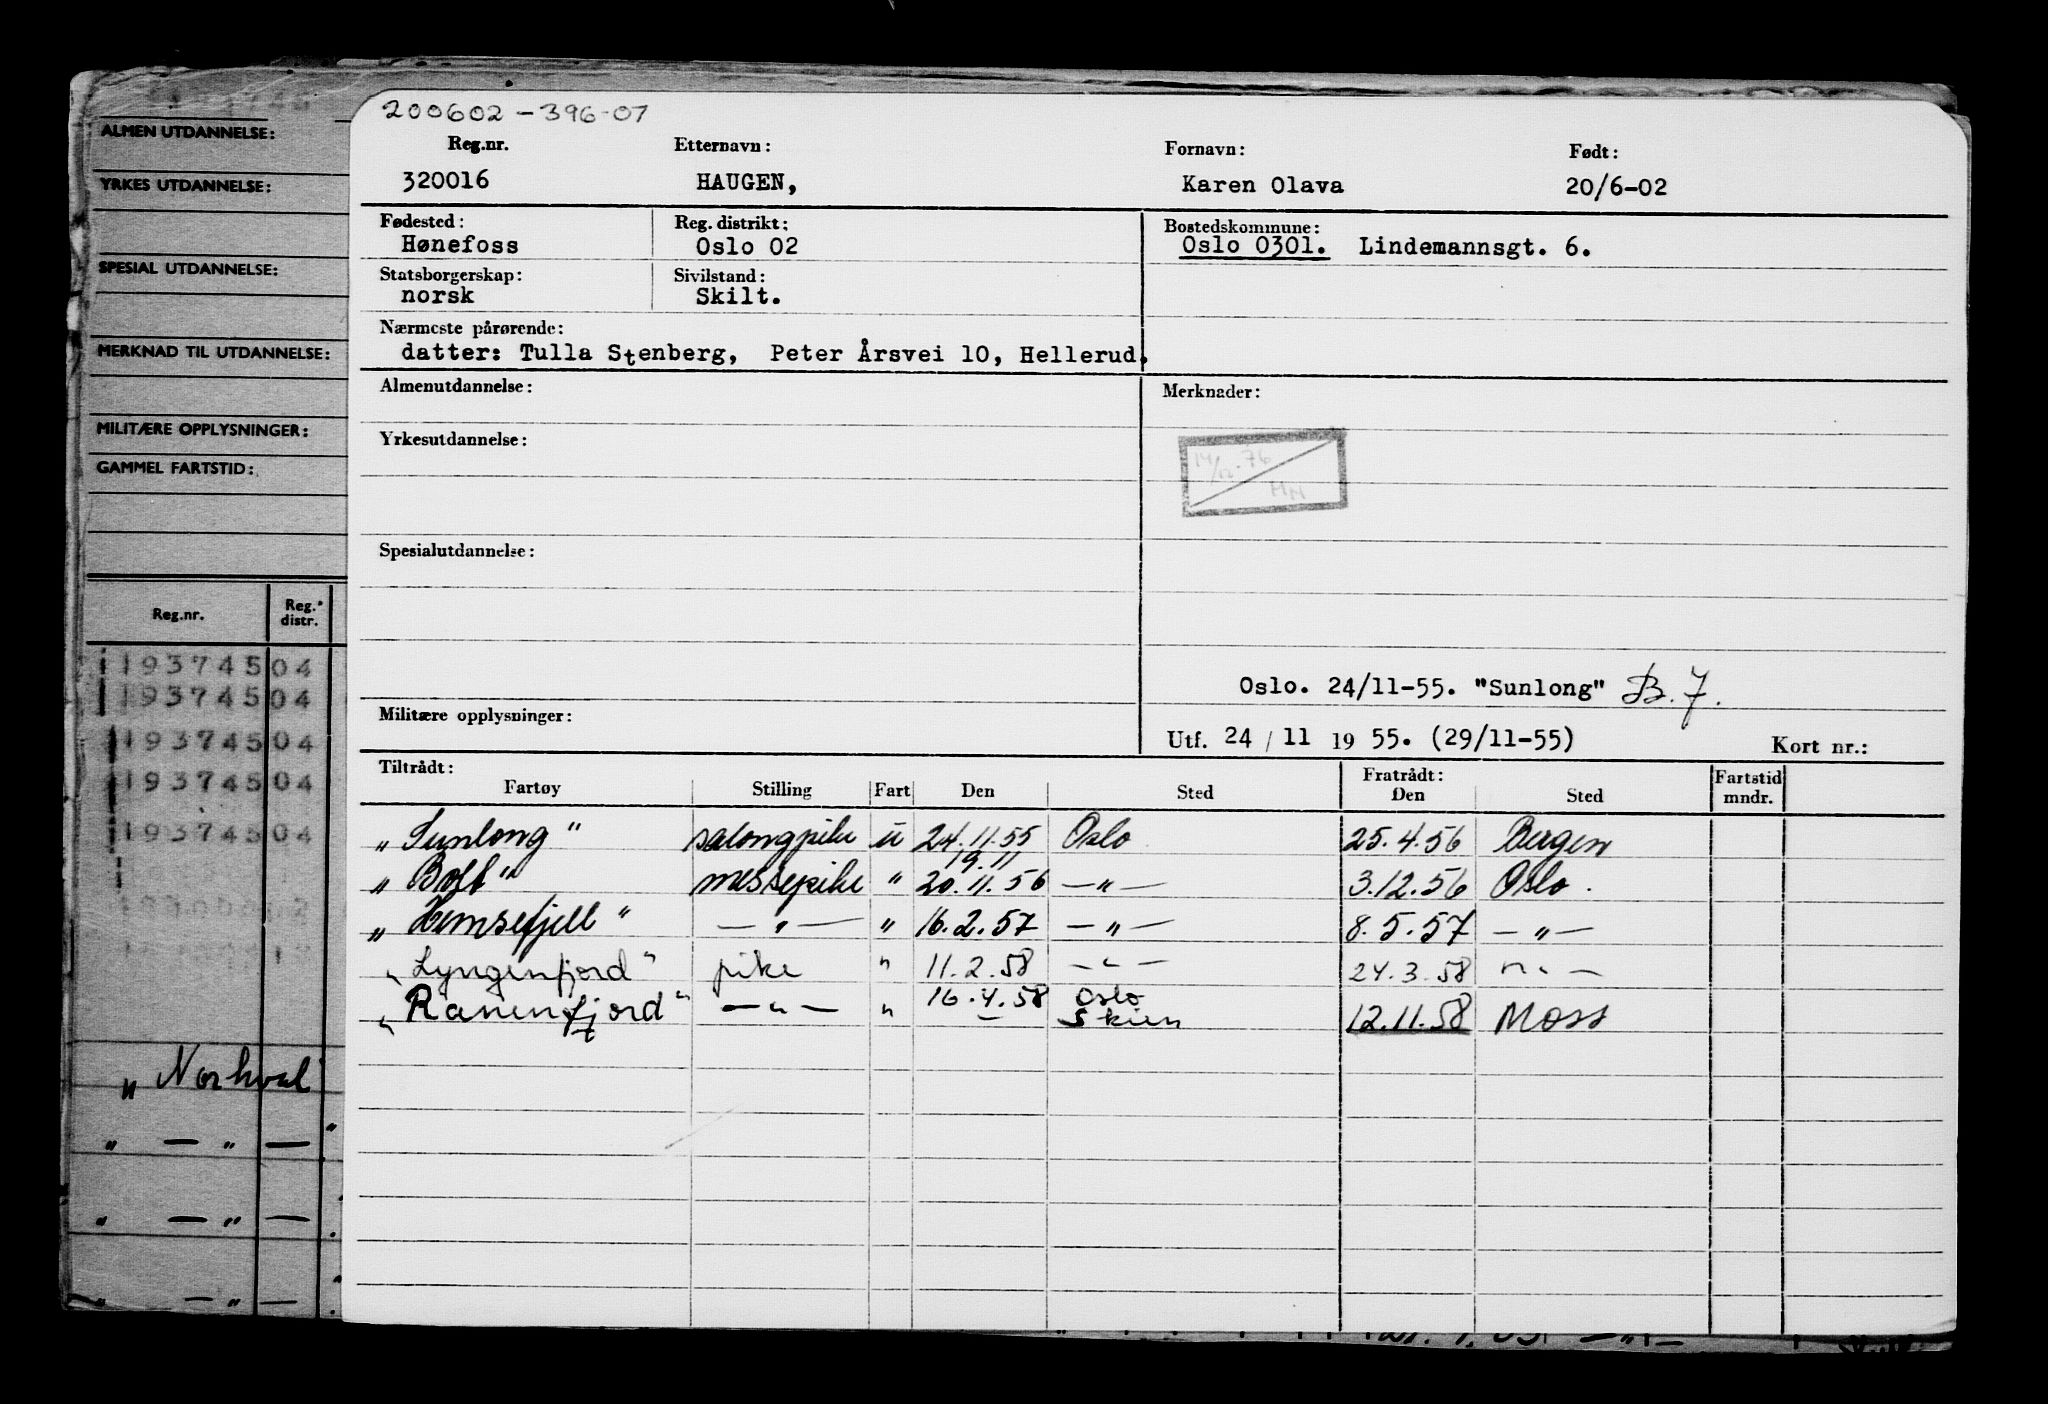 200602-396-07
Reg.nr. Etternavn: Fornavn: Født:
320016 HAUGEN, Karen Olava 20/6-02
Fødested: Reg. distrikt: Bostedskommune:
Hønefoss Oslo 02 Oslo 0301. Lindemannsgt. 6.
Statsborgerskap: Sivilstand:
norsk Skilt.
Nærmeste pårørende:
datter: Tulla Stenberg, Peter Årsvei 10, Hellerud.
Almenutdannelse: Merknader:
Yrkesutdannelse:
14/12-76
HH
Spesialutdannelse:
Oslo. 24/11-55. "Sunlong" B.7.
Militære opplysninger:
Utf. 24 / 11 19 55. (29/11-55) Kort nr.:
Tiltrådt: Fratrådt: Fartstid
Fartøy Stilling Fart Den Sted Den Sted mndr.
„ Sunlong " salongpike u 24.11.55 Oslo 25.4.56 Bergen
19.11
„ Bolt " messepike " 20.11.56 — " — 3.12.56 Oslo.
„ Hemsefjell " — " — " 16.2.57 — " — 8.5.57 — " —
„ Lyngenfjord " pike " 11.2.58 — " — 24.3.58 — " —
„ Ranenfjord " — " — " 16.4.58 Oslo
Skien 12.11.58 Moss
ALMEN UTDANNELSE:
YRKES UTDANNELSE:
SPESIAL UTDANNELSE:
MERKNAD TIL UTDANNELSE:
MILITÆRE OPPLYSNINGER:
GAMMEL FARTSTID:
Reg.nr. Reg. distr.
193745 04
193745 04
193745 04
193745 04
193745 04
„ Norhval
" — " —
" — " —
" — " —